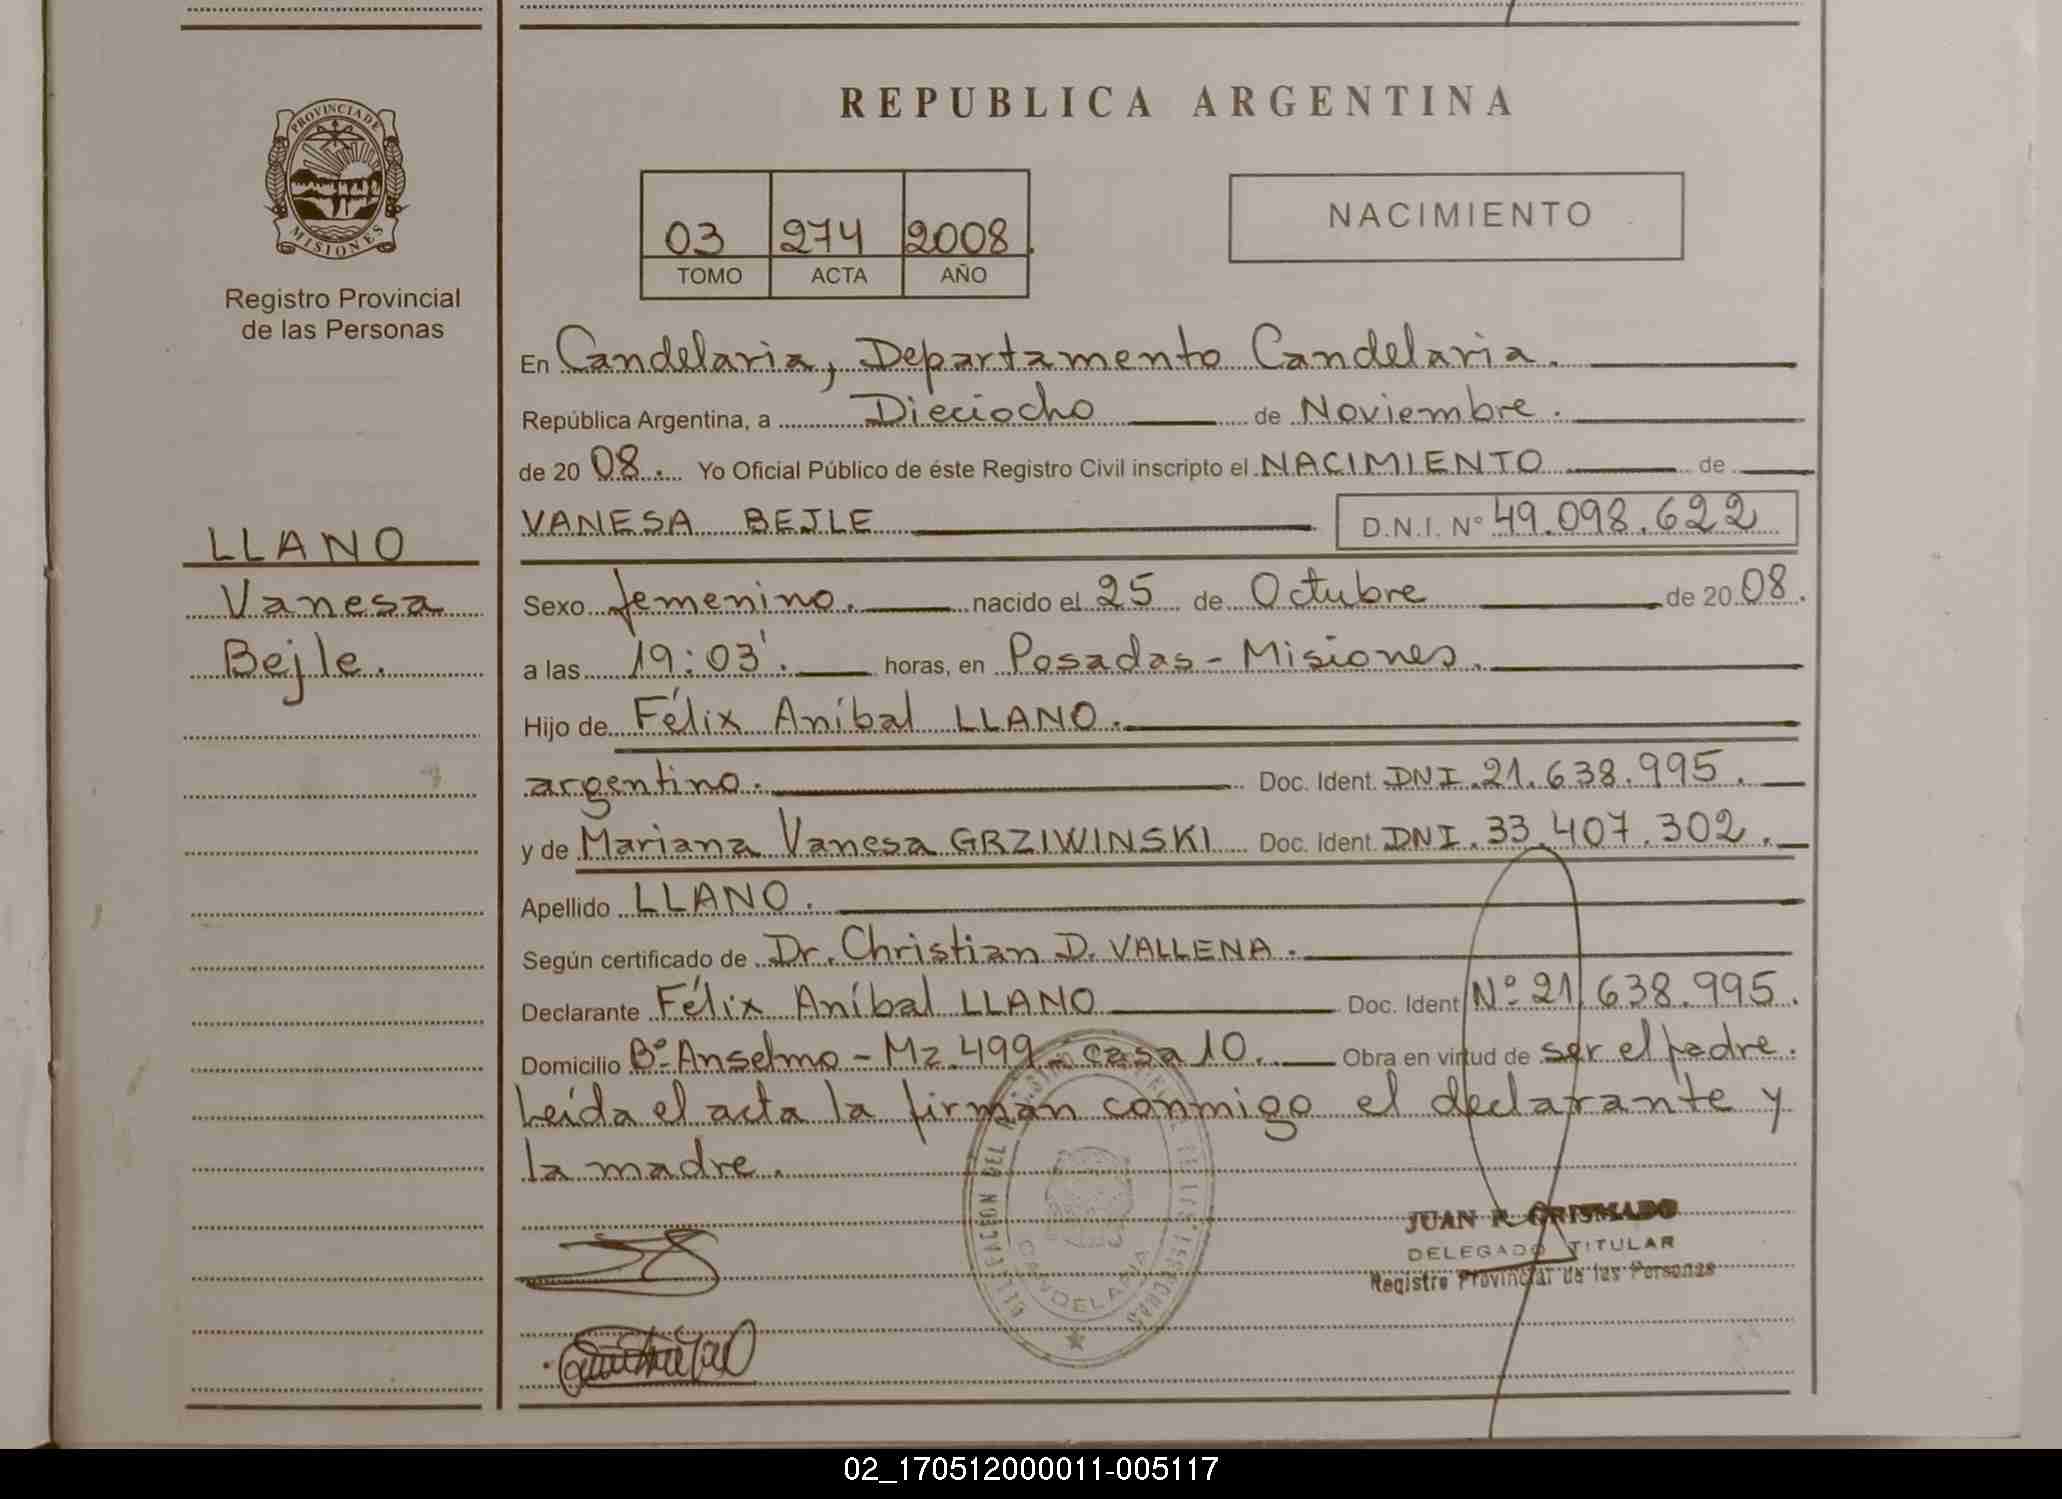 REPUBLICA ARGENTINA
PROVINCIA DE
MISIONES
Registro Provincial
de las Personas
03 274 2008.
TOMO ACTA AÑO
NACIMIENTO
En Candelaria, Departamento Candelaria.
República Argentina, a Dieciocho de Noviembre.
de 20 08. Yo Oficial Público de éste Registro Civil inscripto el NACIMIENTO de
VANESA BEJLE D.N.I. N° 49.098.622
LLANO
Vanesa
Bejle.
Sexo femenino. nacido el 25 de Octubre de 20 08.
a las 19:03'. horas, en Posadas - Misiones.
Hijo de Félix Aníbal LLANO.
argentino. Doc. Ident. DNI. 21.638.995.
y de Mariana Vanesa GRZIWINSKI Doc. Ident. DNI. 33.407.302.
Apellido LLANO.
Según certificado de Dr. Christian D. VALLENA.
Declarante Félix Aníbal LLANO Doc. Ident N° 21.638.995.
Domicilio B° Anselmo - Mz. 499 - casa 10. Obra en virtud de ser el padre.
Leída el acta la firman conmigo el declarante y
la madre.
CANDELARIA
JUAN R. GRISMADO
DELEGADO TITULAR
Registro Provincial de las Personas
02_170512000011-005117